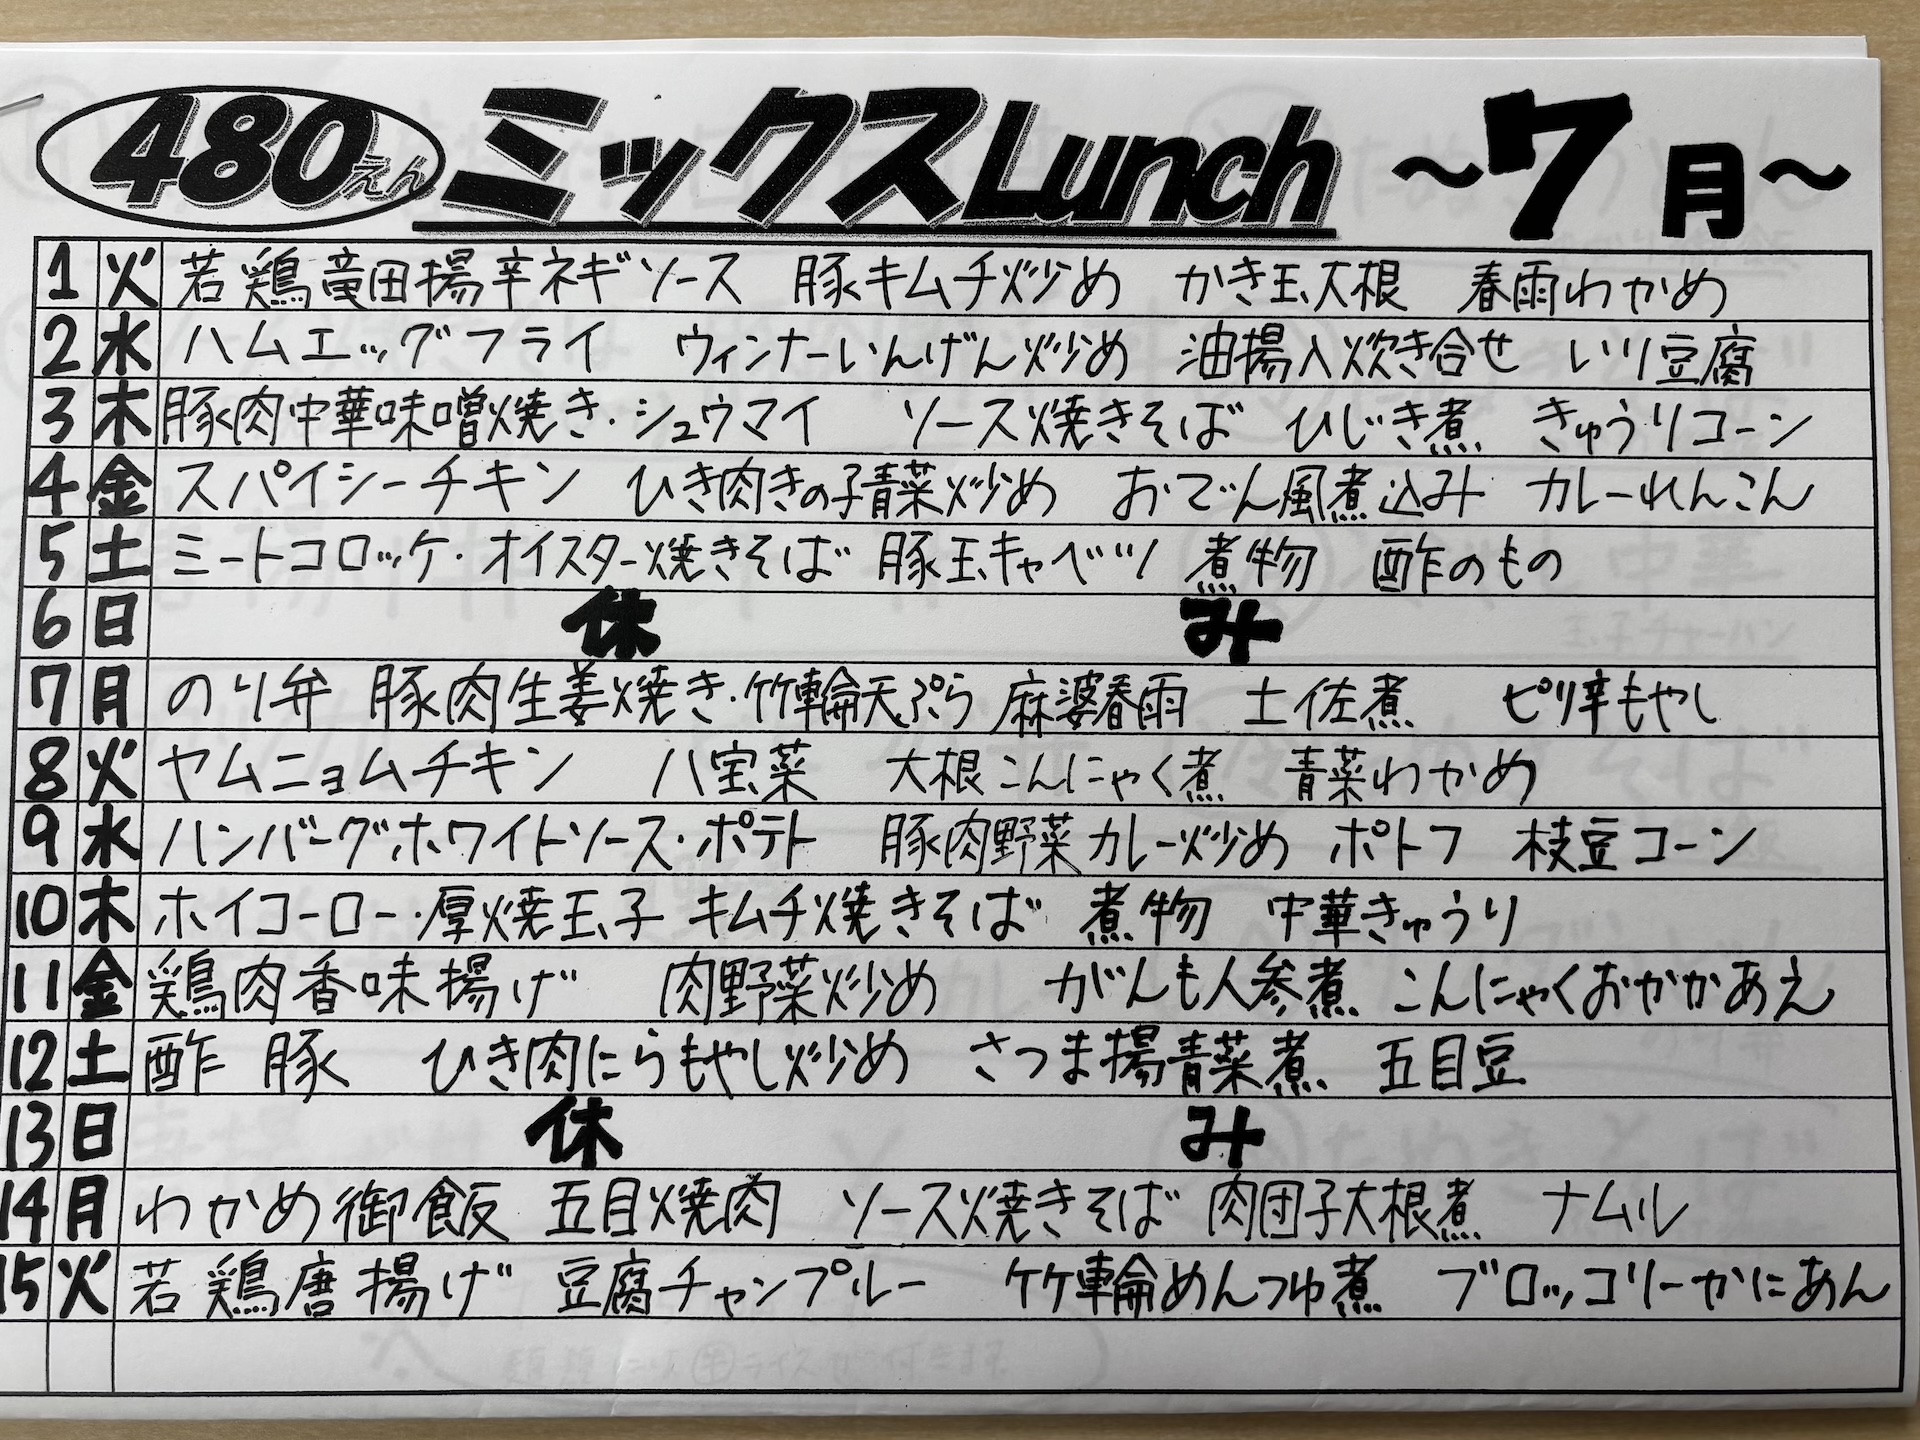 480えん ミックスLunch ～7月～
1 火 若鶏竜田揚辛ネギソース 豚キムチ炒め かき玉大根 春雨わかめ
2 水 ハムエッグフライ ウィンナーいんげん炒め 油揚入炊き合せ いり豆腐
3 木 豚肉中華味噌焼き・シュウマイ ソース焼きそば ひじき煮 きゅうりコーン
4 金 スパイシーチキン ひき肉きの子青菜炒め おでん風煮込み カレーれんこん
5 土 ミートコロッケ・オイスター焼きそば 豚玉キャベツ 煮物 酢のもの
6 日 休み
7 月 のり弁 豚肉生姜焼き・竹輪天ぷら 麻婆春雨 土佐煮 ピリ辛もやし
8 火 ヤムニョムチキン 八宝菜 大根こんにゃく煮 青菜わかめ
9 水 ハンバーグホワイトソース・ポテト 豚肉野菜カレー炒め ポトフ 枝豆コーン
10 木 ホイコーロー・厚焼玉子 キムチ焼きそば 煮物 中華きゅうり
11 金 鶏肉香味揚げ 肉野菜炒め がんも人参煮 こんにゃくおかかあえ
12 土 酢豚 ひき肉にらもやし炒め さつま揚青菜煮 五目豆
13 日 休み
14 月 わかめ御飯 五目焼肉 ソース焼きそば 肉団子大根煮 ナムル
15 火 若鶏唐揚げ 豆腐チャンプルー 竹輪めんつゆ煮 ブロッコリーかにあん